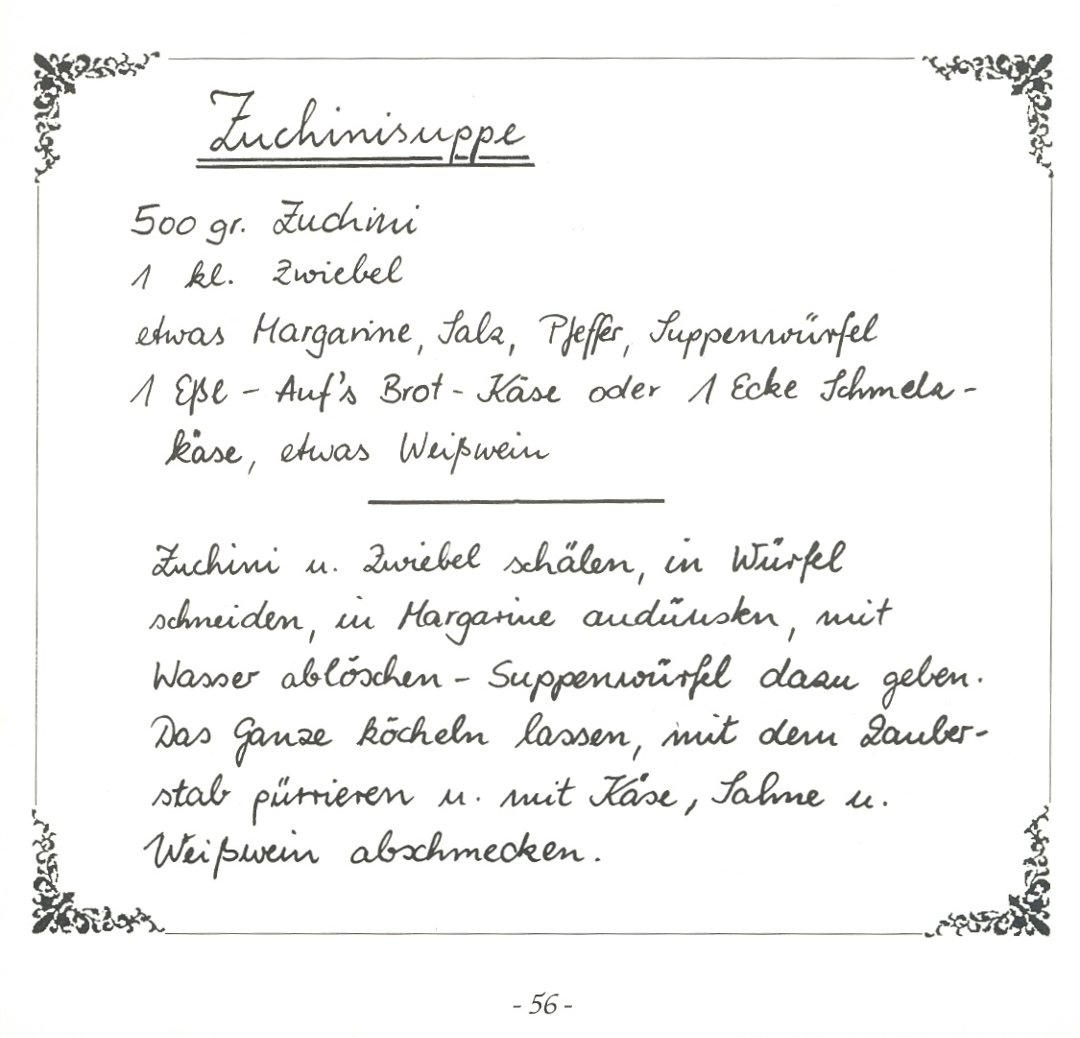 Zuchinisuppe
500 gr. Zuchini
1 kl. Zwiebel
etwas Margarine, Salz, Pfeffer, Suppenwürfel
1 Eßl - Auf's Brot - Käse oder 1 Ecke Schmelz-
käse, etwas Weißwein
Zuchini u. Zwiebel schälen, in Würfel
schneiden, in Margarine andünsten, mit
Wasser ablöschen - Suppenwürfel dazu geben.
Das Ganze köcheln lassen, mit dem Zauber-
stab pürrieren u. mit Käse, Sahne u.
Weißwein abschmecken.
- 56 -